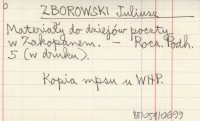 ZBOROWSKI Juliusz
Materiały do dziejów poczty
w Zakopanem. — Rocz. Podh.
5 (w druku).
Kopia mpsu w WHP.